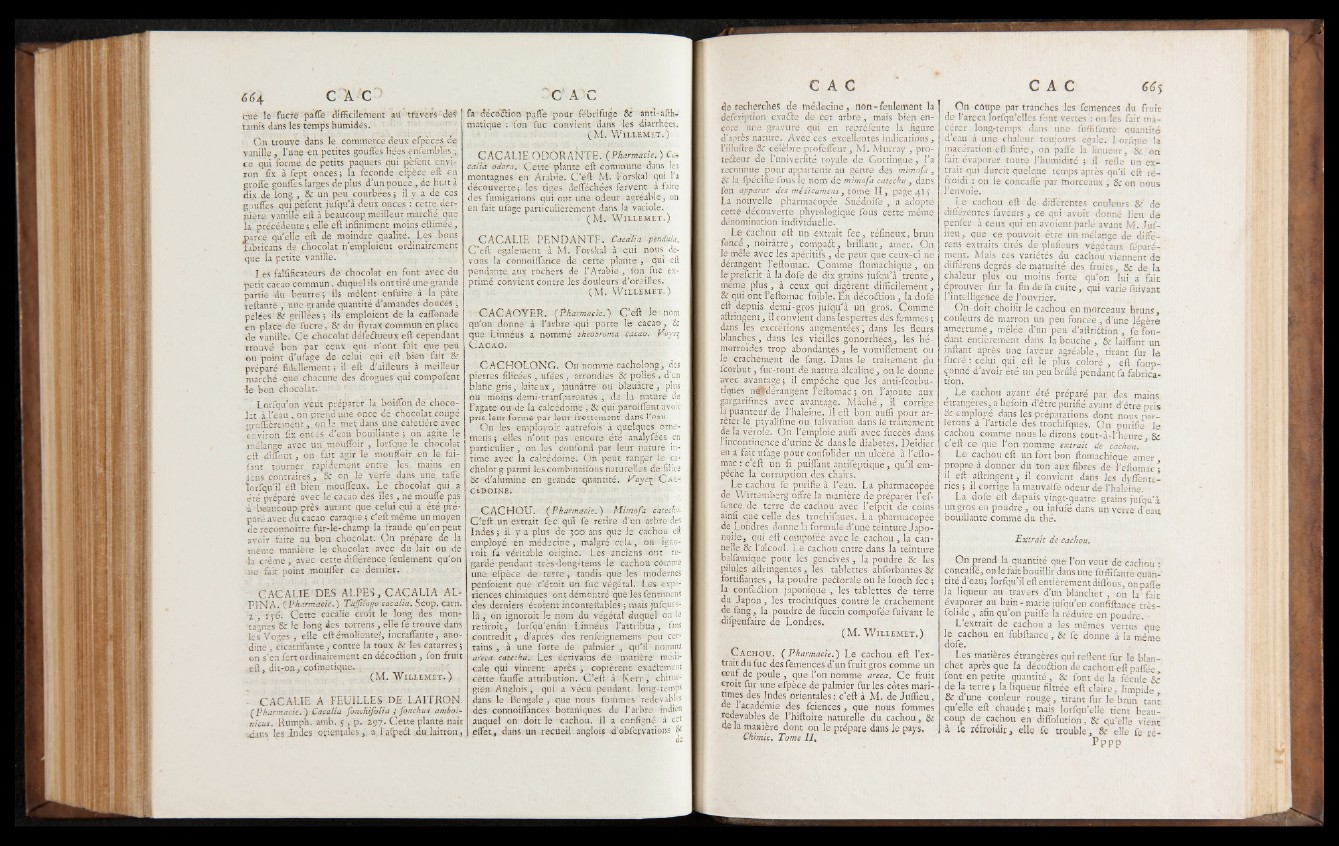 664 CAC
que le sucre passe difficilement au travers des
tamis dans les temps humides.
On trouve dans le commerce deux espèces de
vanille, l'une en petites gousses liées ensembles,
ce qui forme de petits paquets qui pèsent envi-
ron six à sept onces; la seconde espèce est en
grosse gousses larges de plus d'un pouce, de huit à
dix de long, & un peu courbées; il y a de ces
gousses qui pèsent jusqu'à deux onces : cette der-
nière vanille est à beaucoup meilleur marché que
la précédente; elle est infiniment moins estimée,
parce qu'elle est de moindre qualité. Les bons
fabricans de chocolat n'emploient ordinairement
que la petite vanille.
Les falsificateurs de chocolat en font avec du
petit cacao commun, duquel ils ont tiré une grande
partie du beurre; ils mêlent ensuite à la pâte
restante, une grande quantité d'amandes douces,
pelées & grillées; ils emploient de la cassonade
en place de sucre, & du styrax commun en place
de vanille. Ce chocolat défectueux est cependant
trouvé bon par ceux qui n'ont fait que peu
ou point d'usage de celui qui est bien fait &
préparé fidellement; il est d'ailleurs à meilleur
marché que chacune des drogues qui composent
le bon chocolat.
Lorsqu'on veut préparer la boisson de choco-
lat à l'eau, on prend une once de chocolat coupé
grossièrement, on le met dans une cafetière avec
environ six onces d'eau bouillante; on agite le
mélange avec un moussoir, lorsque le chocolat
est dissout, on fait agir le moussoir en le fai-
sant tourner rapidement entre les mains en
sens contraires, & on le verse dans une tasse
lorsqu'il est bien mousseux. Le chocolat qui a
été préparé avec le cacao des îles, ne mousse pas
à beaucoup près autant que celui qui a été pré-
paré avec du cacao caraque; c'est même un moyen
de reconnoître sur-le-champ la fraude qu'on peut
avoir faite au bon chocolat. On prépare de la
même manière le chocolat avec du lait ou de
la crême, avec cette différence seulement qu'on
ne fait point mousser ce dernier.
CACALIE DES ALPES, CACALIA AL-
PINA. (Pharmacie.) Tussilago cacalia. Scop. carn.
2, 156. Cette cacalie croît le long des mon-
tagnes & le long des torrens, elle se trouve dans
les Vosges, elle est émoliente, incrassante, ano-
dine, cicatrisante, contre la toux & les catarres;
on s'en sert ordinairement en décoction, son fruit
est, dit-on, cosmatique.
(M. WILLEMET.)
CACALIE A FEUILLES DE LAITRON.
(Pharmacie.) Cacalia sonchifolia; sonchus amboi-
nicus. Rumph. amb. 5, p. 297. Cette plante nait
dans les Indes orientales, a l'aspect du laitron,
CAC
sa décoction passe pour fébrifuge & anti-asth-
matique : son suc convient dans les diarrhées.
(M. WILLEMET.)
CACALIE ODORANTE. (Pharmacie.) Ca-
calia odora. Cette plante est commune dans les
montagnes en Arabie. C'est M. Forskal qui l'a
découverte; les tiges desséchées servent à faire
des fumigations qui ont une odeur agréable, on
en fait usage particulièrement dans la variole.
(M. WILLEMET.)
CACALIE PENDANTE. Cacalia pendula.
C'est également à M. Forskal à qui nous de-
vons la connoissance de cette plante, qui est
pendante aux rochers de l'Arabie, son suc ex-
primé convient contre les douleurs d'oreilles.
(M. WILLEMET.)
CACAOYER. (Pharmacie.) C'est le nom
qu'on donne à l'arbre qui porte le cacao, &
que Linnéus a nommé theobroma cacao. Voyez
CACAO.
CACHOLONG. On nomme cacholong, des
pierres silicées, usées, arrondies & polies, d'un
blanc gris, laiteux, jaunâtre ou bleuâtre, plus
ou moins demi-transparentes, de la nature de
l'agate ou de la calcédoine, & qui paroissent avoir
pris leur forme par leur frottement dans l'eau.
On les employoit autrefois à quelques orne-
mens; elles n'ont pas encore été analysées en
particulier, on les confond par leur nature in-
time avec la calcédoine. On peut ranger le ca-
cholong parmi les combinaisons naturelles de silice
& d'alumine en grande quantité. Voyez CAL-
CÉDOINE.
CACHOU. (Pharmacie.) Mimosa catechu.
C'est un extrait sec qui se retire d'un arbre des
Indes; il y a plus de 300 ans que le cachou est
employé en médecine, malgré cela, on igno-
roit sa véritable origine. Les anciens ont re-
gardé pendant très-long-tems le cachou comme
une espèce de terre, tandis que les modernes
pensoient que c'étoit un suc végétal. Les expé-
riences chimiques ont démontré que les sentimens
des derniers étoient incontestables; mais jusques-
là, on ignoroit le nom du végétal duquel on le
retiroit, lorsqu'enfin Linnéus l'attribua, sans
contredit, d'après des renseignemens peu cer-
tains, à une sorte de palmier, qu'il nomma
areca catechu. Les écrivains de matière médi-
cale qui vinrent après, copièrent exactement
cette fausse attribution. C'est à Kerr, chirur-
gien Anglois, qui a vécu pendant long-temps
dans le Bengale, que nous sommes redevables
des connoissances botaniques de l'arbre indien
auquel on doit le cachou. Il a consigné à cet
effet, dans un recueil anglois d'observations &
de
CAC
de recherches de médecine, non-seulement la
description exacte de cet arbre, mais bien en-
core une gravure qui en représente la figure
d'après nature. Avec ces excellentes indications,
l'illustre & célèbre professeur, M. Murray, pro-
tecteur de l'université royale de Gottingue, l'a
reconnue pour appartenir au genre des mimosa,
& la spécifie sous le nom de mimosa catechu, dans
son apparat des médicamens, tome II, page 415.
La nouvelle pharmacopée Suédoise, a adopté
cette découverte phytologique sous cette même
dénomination individuelle.
Le cachou est un extrait sec, résineux, brun
foncé, noirâtre, compact, brillant, amer. On
le mêle avec les apéritifs, de peur que ceux-ci ne
dérangent l'estomac. Comme stomachique, on
le prescrit à la dose de dix grains jusqu'à trente,
même plus, à ceux qui digèrent difficilement,
& qui ont l'estomac foible. En décoction, la dose
est depuis demi-gros jusqu'à un gros. Comme
astringent, il convient dans les pertes des femmes;
dans les excrétions augmentées, dans les fleurs
blanches, dans les vieilles gonorrhées, les hé-
morroïdes trop abondantes, le vomissement ou
le crachement de sang. Dans le traitement du
scorbut, sur-tout de nature alcaline, on le donne
avec avantage; il empêche que les anti-scorbu-
tiques ne dérangent l'estomac; on l'ajoute aux
gargarismes avec avantage. Mâché, il corrige
la puanteur de l'haleine. Il est bon aussi pour ar-
rêter le ptyalisme ou salivation dans le traitement
de la vérole. On l'emploie aussi avec succès dans
l'incontinence d'urine & dans le diabetes. Deidier
en a fait usage pour consolider un ulcère à l'esto-
mac : c'est un si puissant antiseptique, qu'il em-
pêche la corruption des chairs.
Le cachou se purifie à l'eau. La pharmacopée
de Wirtemberg offre la manière de préparer l'es-
sence de terre de cachou avec l'esprit de coins
ainsi que celle des trochisques. La pharmacopée
de Londres donne la formule d'une teinture Japo-
noise, qui est composée avec le cachou, la can-
nelle & l'alcool. Le cachou entre dans la teinture
balsamique pour les gencives, la poudre & les
pilules astringentes, les tablettes absorbantes &
fortifiantes, la poudre pectorale ou le looch sec;
la confection japonique, les tablettes de terre
du Japon, les trochisques contre le crachement
de sang, la poudre de succin composée suivant le
dispensaire de Londres.
(M. WILLEMET.)
CACHOU. (Pharmacie.) Le cachou est l'ex-
trait du suc des semences d'un fruit gros comme un
œuf de poule, que l'on nomme areca. Ce fruit
croît sur une espèce de palmier sur les côtes mari-
times des Indes orientales : c'est à M. de Jussieu,
de l'académie des sciences, que nous sommes
redevables de l'histoire naturelle du cachou, &
de la manière dont on le prépare dans le pays.
Chimie. Tome II.
CAC 665
On coupe par tranches les semences du fruit
de l'areca lorsqu'elles sont vertes : on les fait ma-
cérer long-temps dans une suffisante quantité
d'eau à une chaleur toujours égale. Lorsque la
macération est faite, on passe la liqueur, & on
fait évaporer toute l'humidité; il reste un ex-
trait qui durcit quelque temps après qu'il est ré-
froidi : on le concasse par morceaux, & on nous
l'envoie.
Le cachou est de différentes couleurs & de
différentes saveurs, ce qui avoit donné lieu de
penser à ceux qui en avoient parlé avant M. Jus-
sieu, que ce pouvoit être un mélange de diffé-
rens extraits tirés de plusieurs végétaux séparé-
ment. Mais ces variétés du cachou viennent de
différens degrés de maturité des fruits, & de la
chaleur plus ou moins forte qu'on lui a fait
éprouver sur la fin de sa cuite, qui varie suivant
l'intelligence de l'ouvrier.
On doit choisir le cachou en morceaux bruns,
couleurs de marron un peu foncée, d'une légère
amertume, mêlée d'un peu d'astriction, se fon-
dant entièrement dans la bouche, & laissant un
instant après une saveur agréable, tirant sur le
sucré : celui qui est le plus coloré, est soup-
çonné d'avoir été un peu brûlé pendant sa fabrica-
tion.
Le cachou ayant été préparé par des mains
étrangères, a besoin d'être purifié avant d'être pris
& employé dans les préparations dont nous par-
lerons à l'article des trochisques. On purifie le
cachou comme nous le dirons tout-à-l'heure, &
c'est ce que l'on nomme extrait de cachou.
Le cachou est un fort bon stomachique amer,
propre à donner du ton aux fibres de l'estomac;
il est astringent, il convient dans les dyssente-
ries; il corrige la mauvaise odeur de l'haleine.
La dose est depuis vingt-quatre grains jusqu'à
un gros en poudre, ou infusé dans un verre d'eau
bouillante comme du thé.
Extrait de cachou.
On prend la quantité que l'on veut de cachou :
concassé, on le fait bouillir dans une suffisante quan-
tité d'eau; lorsqu'il est entièrement dissous, on passe
la liqueur au travers d'un blanchet, on la fait
évaporer au bain-marie jusqu'en consistance très-
solide, afin qu'on puisse la réduire en poudre.
L'extrait de cachou a les mêmes vertus que
le cachou en substance, & se donne à la même
dose.
Les matières étrangères qui restent sur le blan-
chet après que la décoction de cachou est passée,
sont en petite quantité, & sont de la fécule &
de la terre; la liqueur filtrée est claire, limpide,
& d'une couleur rouge, tirant sur le brun tant
qu'elle est chaude; mais lorsqu'elle tient beau-
coup de cachou en dissolution, & qu'elle vient
à se réfroidir, elle se trouble, & elle se ré-
Pppp